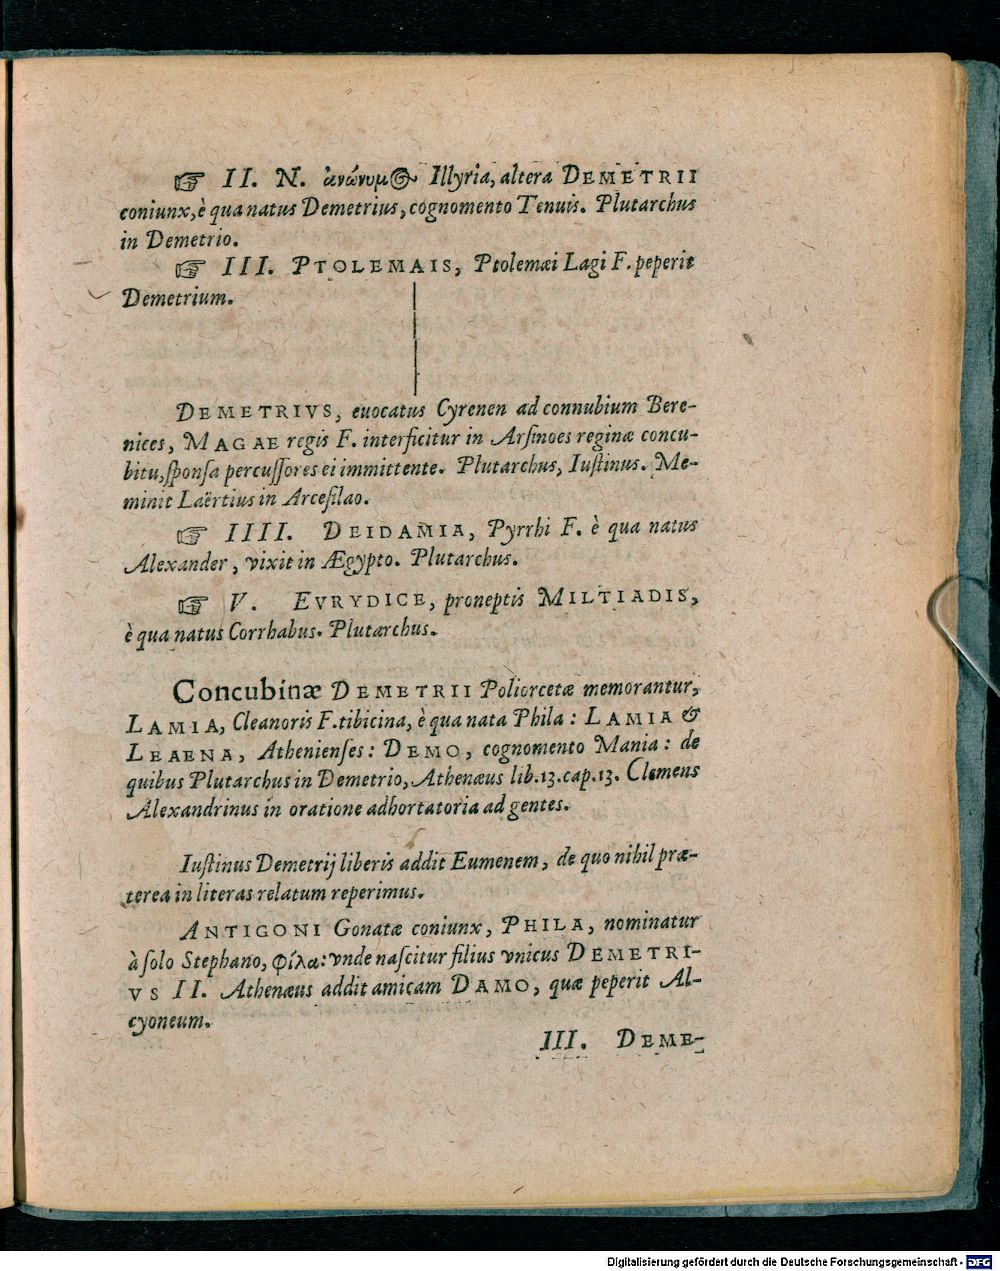 ☞ II. N. ἀνώνυμος Illyria, altera DEMETRII
coniunx, è qua natus Demetrius, cognomento Tenuis. Plutarchus
in Demetrio.
☞ III. PTOLEMAIS, Ptolemæi Lagi F. peperit
Demetrium.
DEMETRIVS, euocatus Cyrenen ad connubium Bere-
nices, MAGAE regis F. interficitur in Arsinoes reginæ concu-
bitu, sponsa percussores ei immittente. Plutarchus, Iustinus. Me-
minit Laërtius in Arcesilao.
☞ IIII. DEIDAMIA, Pyrrhi F. è qua natus
Alexander, vixit in Ægypto. Plutarchus.
☞ V. EVRYDICE, proneptis MILTIADIS,
è qua natus Corrhabus. Plutarchus.
Concubinæ DEMETRII Poliorcetæ memorantur,
LAMIA, Cleanoris F. tibicina, è qua nata Phila: LAMIA &
LEAENA, Athenienses: DEMO, cognomento Mania: de
quibus Plutarchus in Demetrio, Athenæus lib. 13. cap. 13. Clemens
Alexandrinus in oratione adhortatoria ad gentes.
Iustinus Demetrij liberis addit Eumenem, de quo nihil præ-
terea in literas relatum reperimus.
ANTIGONI Gonatæ coniunx, PHILA, nominatur
à solo Stephano, φίλα: vnde nascitur filius vnicus DEMETRI-
VS II. Athenæus addit amicam DAMO, quæ peperit Al-
cyoneum.
III. DEME-
Digitalisierung gefördert durch die Deutsche Forschungsgemeinschaft - DFG